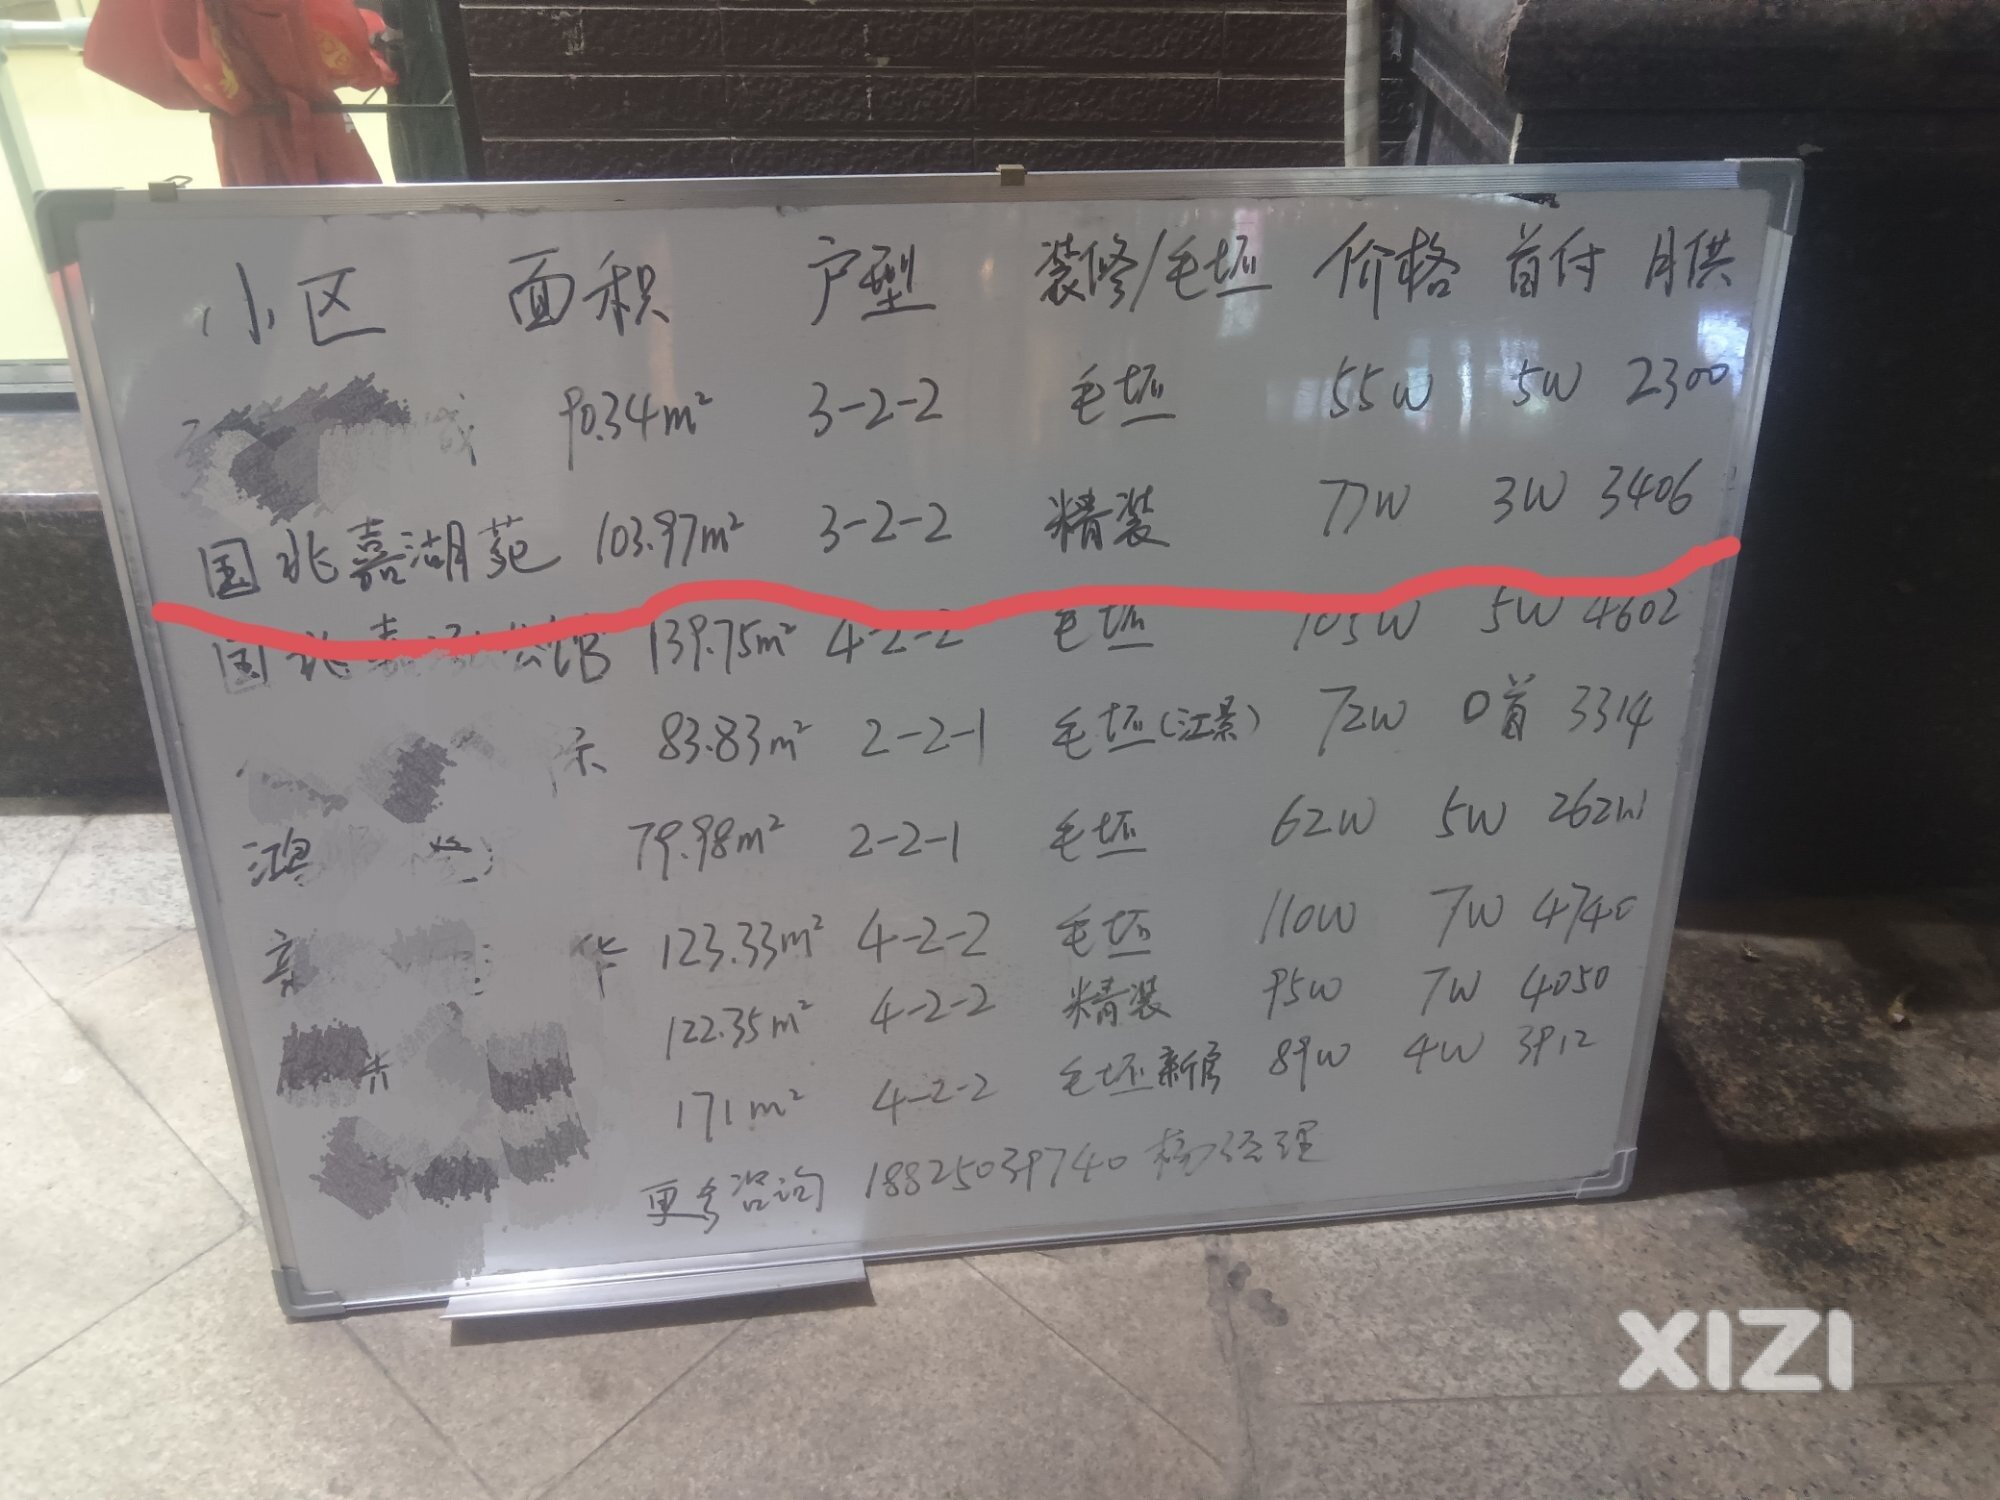 小区 面积 户型 装修/毛坯 价格 首付 月供
90.34m² 3-2-2 毛坯 55W 5W 2300
国兆嘉湖苑 103.97m² 3-2-2 精装 77W 3W 3406
国兆嘉 公馆 139.75m² 4-2-2 毛坯 105W 5W 4602
83.83m² 2-2-1 毛坯(江景) 72W 0首 3314
鸿 79.98m² 2-2-1 毛坯 62W 5W
华 123.33m² 4-2-2 毛坯 110W 7W 4740
122.35m² 4-2-2 精装 95W 7W 4050
171m² 4-2-2 毛坯新房 89W 4W 3912
更多咨询 18825039740 杨经理
XIZI